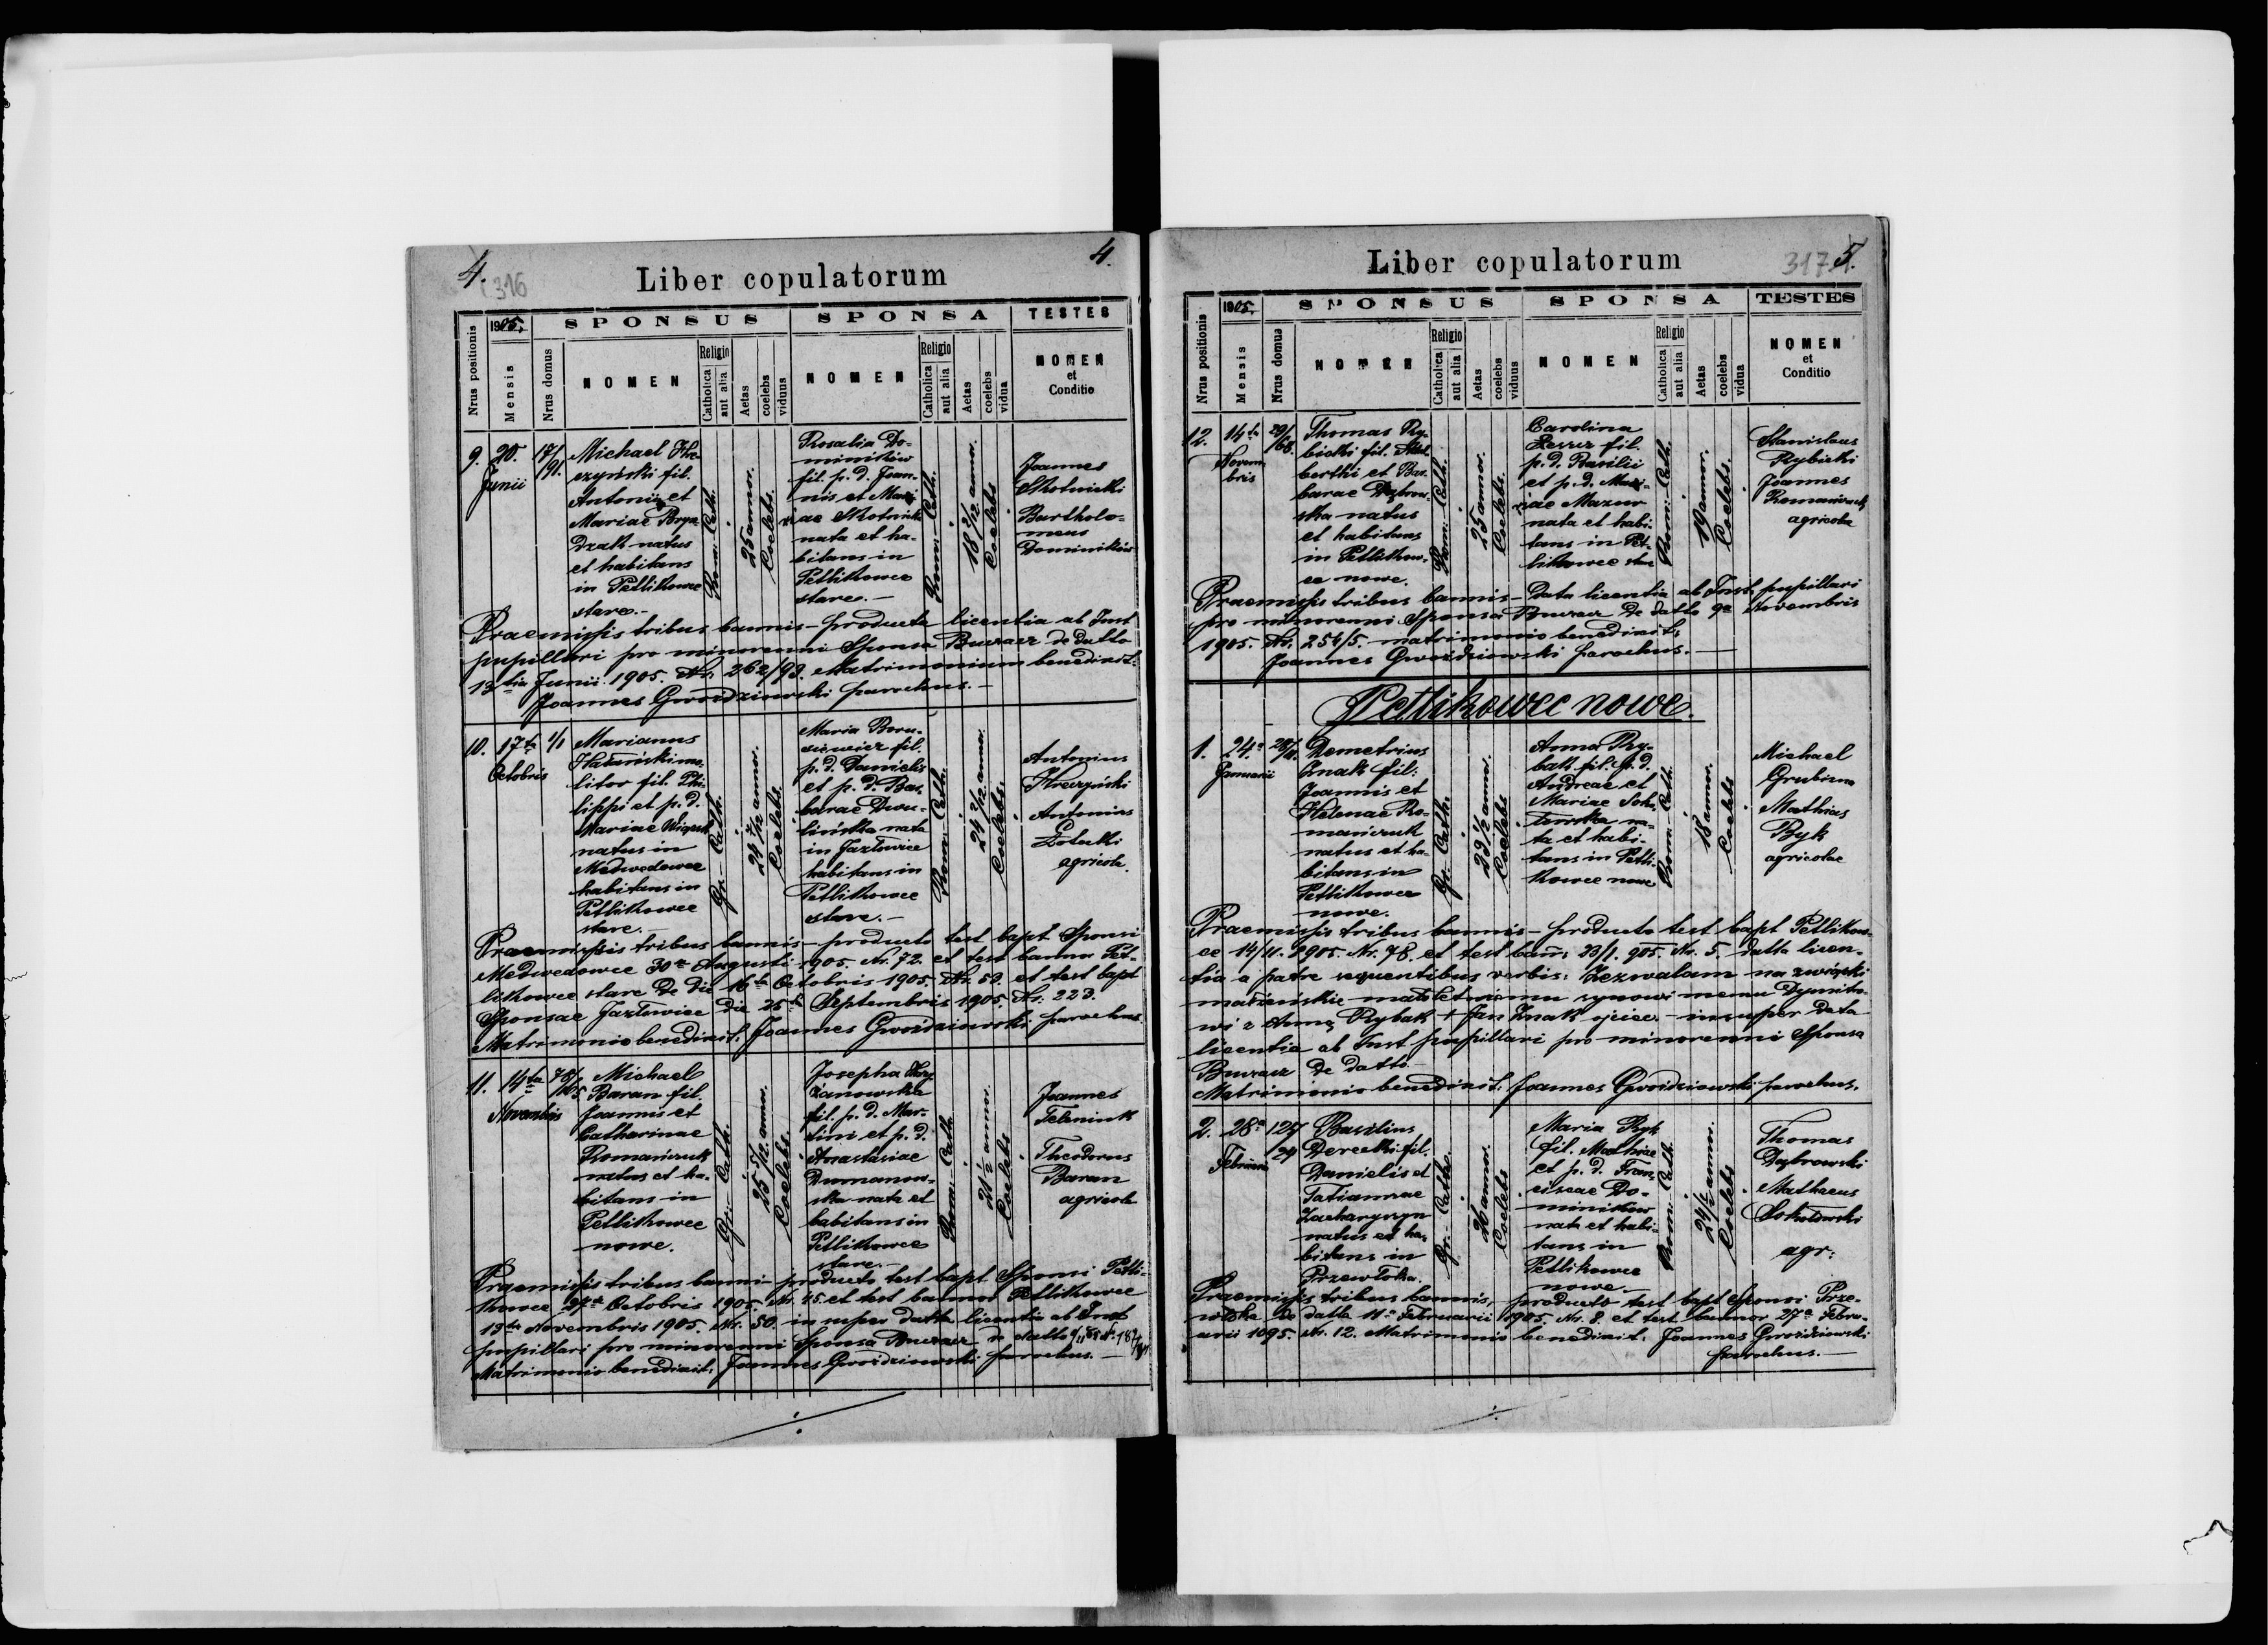 4.
316
4.
Liber copulatorum
Nrus positionis
1905.
Mensis
Nrus domus
SPONSUS
NOMEN
Religio
Catholica
aut alia
Aetas
coelebs
viduus
SPONSA
NOMEN
Religio
Catholica
aut alia
Aetas
coelebs
vidua
TESTES
NOMEN
et
Conditio
9.
20.
Junii
17/
91.
Michael Kre-
czyński fil.
Antonii et
Mariae
natus
et habitans
in Petlikowce
stare.-
Rom. Cath.
25 annor.
Coelebs.
Rosalia Do-
miników
fil. p. d. Joan-
nis et Mari-
ae Skotnicka
nata et ha-
bitans in
Petlikowce
stare.-
Rom. Cath.
18 2/12 annor.
Coelebs
Joannes
Skotnicki
Bartholo-
meus
Dominików
Praemissis tribus bannis - producta licentia ab Inst
pupillari pro minorenni Sponsa Buczacz de datto
13tia Junii 1905. Nr. 262/93. Matrimonium benedixit:
Joannes Gwoździowski parochus.-
10.
17ta
Octobris
1/1
Marianus
litor fil. Phi-
lippi et p. d.
Mariae
natus in
Medwedowce
habitans in
Petlikowce
stare.-
Gr.- Cath.
24 7/12 annor.
Coelebs.
Maria Boru-
siewicz fil.
p. d. Danielis
et p. d. Bar-
barae Dwu-
lińska nata
in Jazłowice
habitans in
Petlikowce
stare.-
Rom. Cath.
24 2/12 annor.
Coelebs.
Antonius
Kreczyński
Antonius
Potocki
agricola.
Praemissis tribus bannis - producto test bapt Sponsi
Medwedowce 30a Augusti 1905. Nr. 72. et test bannor Pet-
likowce stare de die 16ta Octobris 1905. Nr. 53. et test bapt
Sponsae Jazłowice die 25a Septembris 1905. Nr. 223.
Matrimonio benedixit: Joannes Gwoździowski parochus
11.
14ta
Novembris
78/
105
Michael
Baran fil.
Joannis et
Catharinae
Romańczuk
natus et ha-
bitans in
Petlikowce
nowe.
Gr.- Cath.
25 5/12 annor.
Coelebs.
Josepha
fil. p. d. Mar-
tini et p. d.
Anastasiae
Dumanow-
ska nata et
habitans in
Petlikowce
stare.-
Rom. Cath
21 1/2 annor.
Coelebs
Joannes
Teleniuk
Theodorus
Baran
agricola
Praemissis tribus bannis - producto test bapt Sponsi Petli-
kowce 27a Octobris 1905. Nr. 45. et test bannor Petlikowce
13tia Novembris 1905. Nr. 50. insuper datta licentia ab Inst
pupillari pro minorenni Sponsa Buczacz de datto
Matrimonio benedixit: Joannes Gwoździowski parochus.-
317
5.
Liber copulatorum
Nrus positionis
1905.
Mensis
Nrus domus
SPONSUS
NOMEN
Religio
Catholica
aut alia
Aetas
coelebs
viduus
SPONSA
NOMEN
Religio
Catholica
aut alia
Aetas
coelebs
vidua
TESTES
NOMEN
et
Conditio
12.
14ta
Novem
bris
29/
68.
Thomas Ry-
bicki fil. Adal-
berthi et Bar-
barae Dąbrow-
ska natus
et habitans
in Petlikow-
ce nowe.
Rom. Cath.
25 annor.
Coelebs.
Carolina
fil.
p. d. Basilii
et p. d. Mari-
ae Mazur
nata et habi-
tans in Pet-
likowce stare
Rom. Cath.
19 annor.
Coelebs.
Stanislaus
Rybicki
Joannes
Romańczuk
agricola
Praemissis tribus bannis - Data licentia ab Inst. pupillari
pro minorenni Sponsa Buczacz de datto 9a Novembris
1905. Nr. 254/5. matrimonio benedixit:
Joannes Gwoździowski parochus.-
Petlikowce nowe.
1.
24a
Januarii
28/
Demetrius
Znak fil:
Joannis et
Helenae Ro-
mańczuk
natus et ha-
bitans in
Petlikowce
nowe.
Gr.- Cath.
23 1/2 annor.
Coelebs
Anna Ry-
bak fil. p. d.
Andreae et
Mariae Soko-
łowska na-
ta et habi-
tans in Petli-
kowce nowe
Rom. Cath.
18 annor.
Coelebs
Michael
Grubizna
Mathias
Byk
agricolae
Praemissis tribus bannis - producto test bapt Petlikow-
ce 14/11. 1905. Nr. 78. et test bann: 23/1. 905. Nr. 5. datta licen-
tia a patre sequentibus verbis: Zezwalam na związki
małżeńskie małoletniemu synowi memu Dymitro-
wi z Anną Rybak + Jan Znak ojciec. - insuper data
licentia ab Inst pupillari pro minorenni Sponsa
Buczacz de datto
Matrimonio benedixit: Joannes Gwoździowski parochus.
2.
28a
Februarii
127
29
Basilius
Derecki fil.
Danielis et
Tatiannae
Zacharyszyn
natus et ha-
bitans in
Przewłoka.
Gr.- Cath.
26 annor.
Coelebs
Maria Byk
fil. Mathiae
et p. d. Fran-
ciscae Do-
miników
nata et habi-
tans in
Petlikowce
nowe.-
Rom. Cath.
24 1/2 annor.
Coelebs
Thomas
Dąbrowski
Matheus
Sokołowski
agr:
Praemissis tribus bannis, producto test bapt Sponsi Prze-
włoka de datta 11a Februarii 1905. Nr. 8. et test bannor 27a Febru-
arii 1095. Nr. 12. Matrimonio benedixit: Joannes Gwoździowski
parochus.-